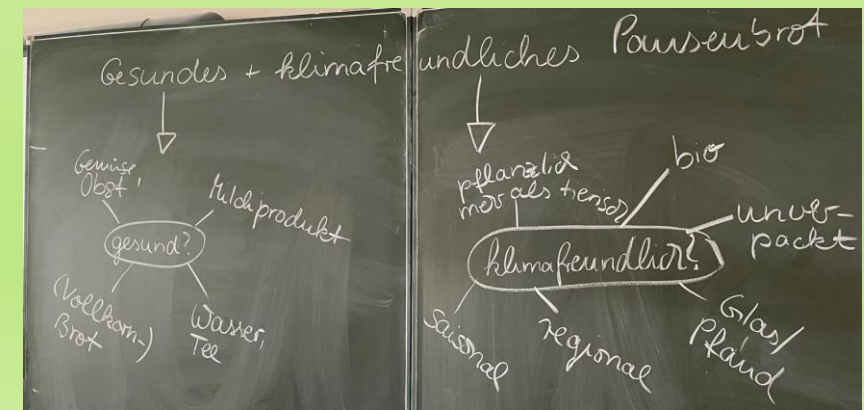 Gesundes + klimafreundliches Pausenbrot
Gemüse,
Obst
Milchprodukt
gesund?
(Vollkorn-)
Brot
Wasser,
Tee
pflanzlich
mehr als tierisch
bio
unver-
packt
klimafreundlich?
saisonal
regional
Glas/
Pfand